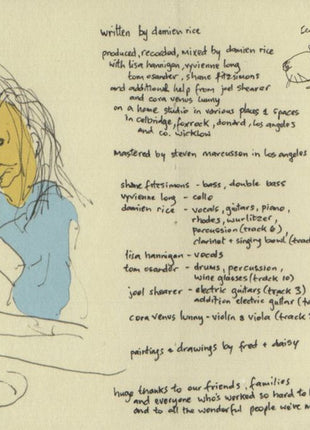 written by damien rice
produced, recorded, mixed by damien rice
with lisa hannigan, vyvienne long
tom osander, shane fitzsimons
and additional help from joel shearer
and cora venus lunny
on a home studio in various places & spaces
in celbridge, foxrock, donard, los angeles
and co. wicklow
mastered by steven marcusson in los angeles
shane fitzsimons - bass, double bass
vyvienne long - cello
damien rice - vocals, guitars, piano,
rhodes, wurlitzer,
percussion (track 6)
clarinet + singing bowl (trac
lisa hannigan - vocals
tom osander - drums, percussion,
wine glasses (track 10)
joel shearer - electric guitars (track 3)
addition electric guitar (t
cora venus lunny - violin & viola (track
paintings & drawings by fred & daisy
huge thanks to our friends, families
and everyone who's worked so hard to
and to all the wonderful people we've m